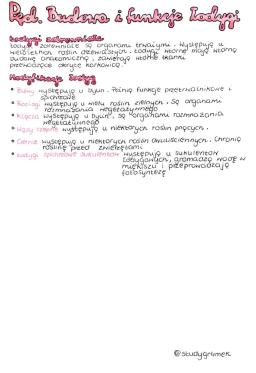 Rod. Budowa i funkcje łodygi
Łodygi zdrewniałe
Łodygi zdrewniałe są organami trwałymi. Występują u
wieloletnich roślin drzewiastych. Łodygi wtórne mają wtórną
budowę anatomiczną, zawierają wtórne tkanki
przewodzące okryte korkowicą.
Modyfikacje łodyg
* Bulwy występują u bylin. Pełnią funkcje przetrwalnikowe i
spichrzowe
* Rozłogi występują u wielu roślin zielnych. Są organami
rozmnażania wegetatywnego
* Kłącza występują u bylin, są organami rozmnażania
wegetatywnego
* Wąsy czepne występują u niektórych roślin pnących.
* Ciernie występują u niektórych roślin dwuliściennych. Chronią
roślinę przed zwierzętami.
* Łodygi spichrzowe sukulentów występują u sukulentów
łodygowych, gromadzą wodę w
miękiszu i przeprowadzają
fotosyntezę
@studygrimek